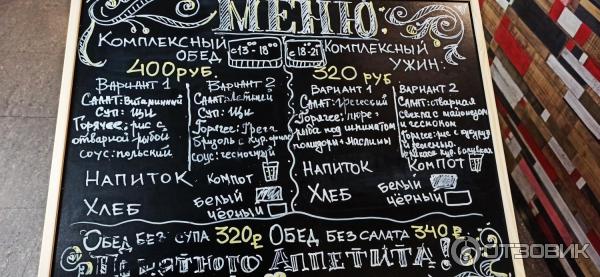 МЕНЮ
Комплексный обед с 13⁰⁰-18⁰⁰
400 руб.
Вариант 1
Салат: Витаминный
Суп: Щи
Горячее: рис с
отварной рыбой
соус: польский
Вариант 2
Салат: Летний
Суп: Щи
Горячее: Греча
бризоль с кур. филе
соус: чесночный
Напиток компот
Хлеб белый
чёрный
с 18-21
Комплексный ужин:
320 руб
Вариант 1
Салат: греческий
Горячее: пюре
рыба под шпинатом
помидоры маслины
Вариант 2
Салат: отварная
свекла с майонезом
и чесноком
Горячее: рис с
и зеленью.
Напиток компот
Хлеб белый
чёрный
Обед без супа 320₽ Обед без салата 340₽
Приятного Аппетита!
ОТЗОВИК